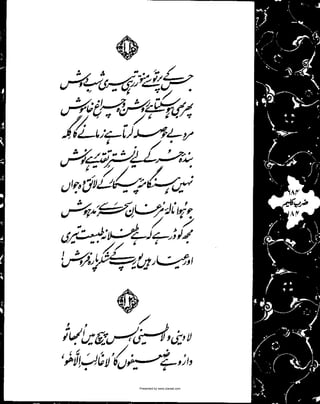 جس کے پرتو سے منور رہی تیری شب دوش
پھر بھی ہو سکتا ہے روشن وہ چراغ خاموش
مرد بے حوصلہ کرتا ہے زمانے کا گلہ
بندۂ حر کے لیے نشتر تقدیر ہے نوش
نہیں ہنگامۂ پیکار کے لائق وہ جواں
جو ہوا نالۂ مرغان سحر سے مدہوش
مجھ کو ڈر ہے کہ ہے طفلانہ طبیعت تیری
اور عیار ہیں یورپ کے شکر پارہ فروش!
لا دینی و لاطینی، کس پیچ میں الجھا تو
دارو ہے ضعیفوں کا 'لا غالب الا ھو'
ضرب کلیم